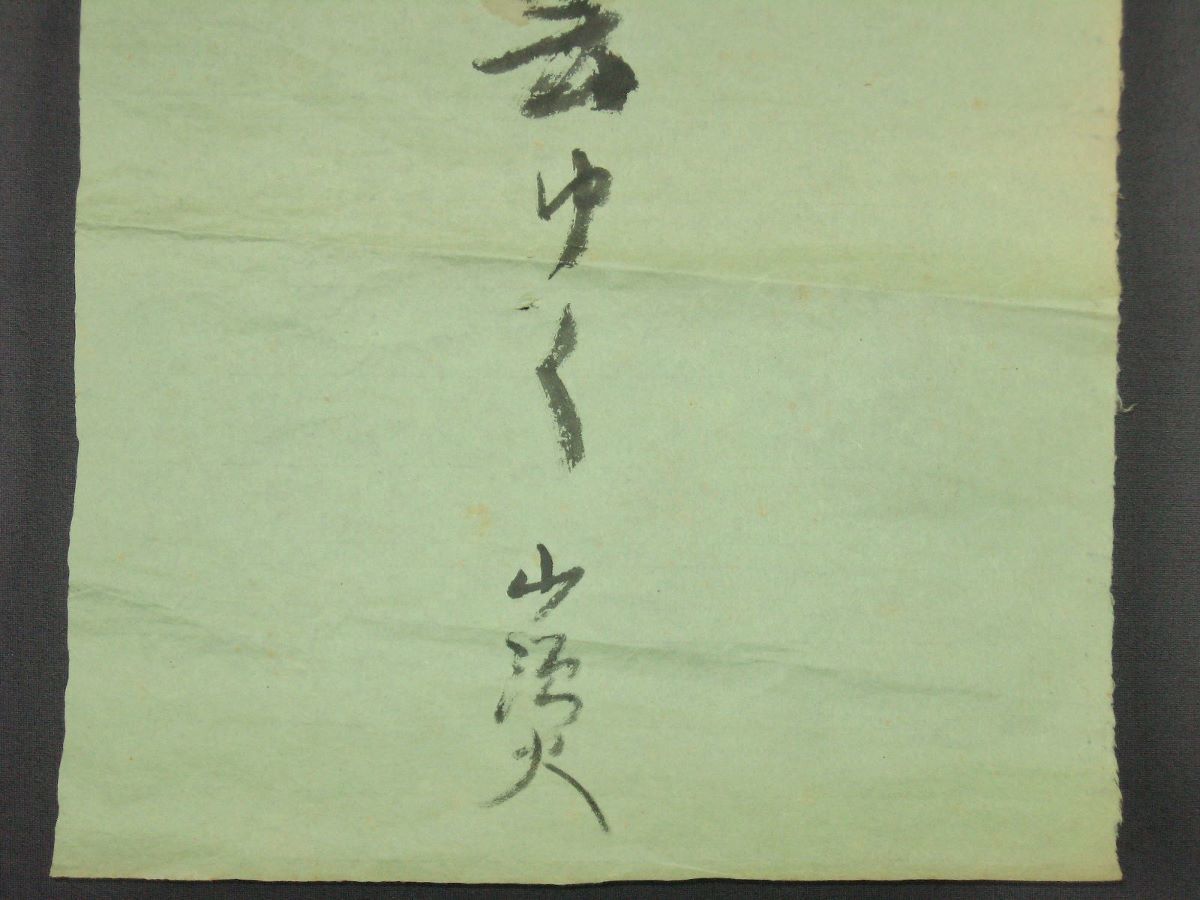 雲ゆく 山頭火